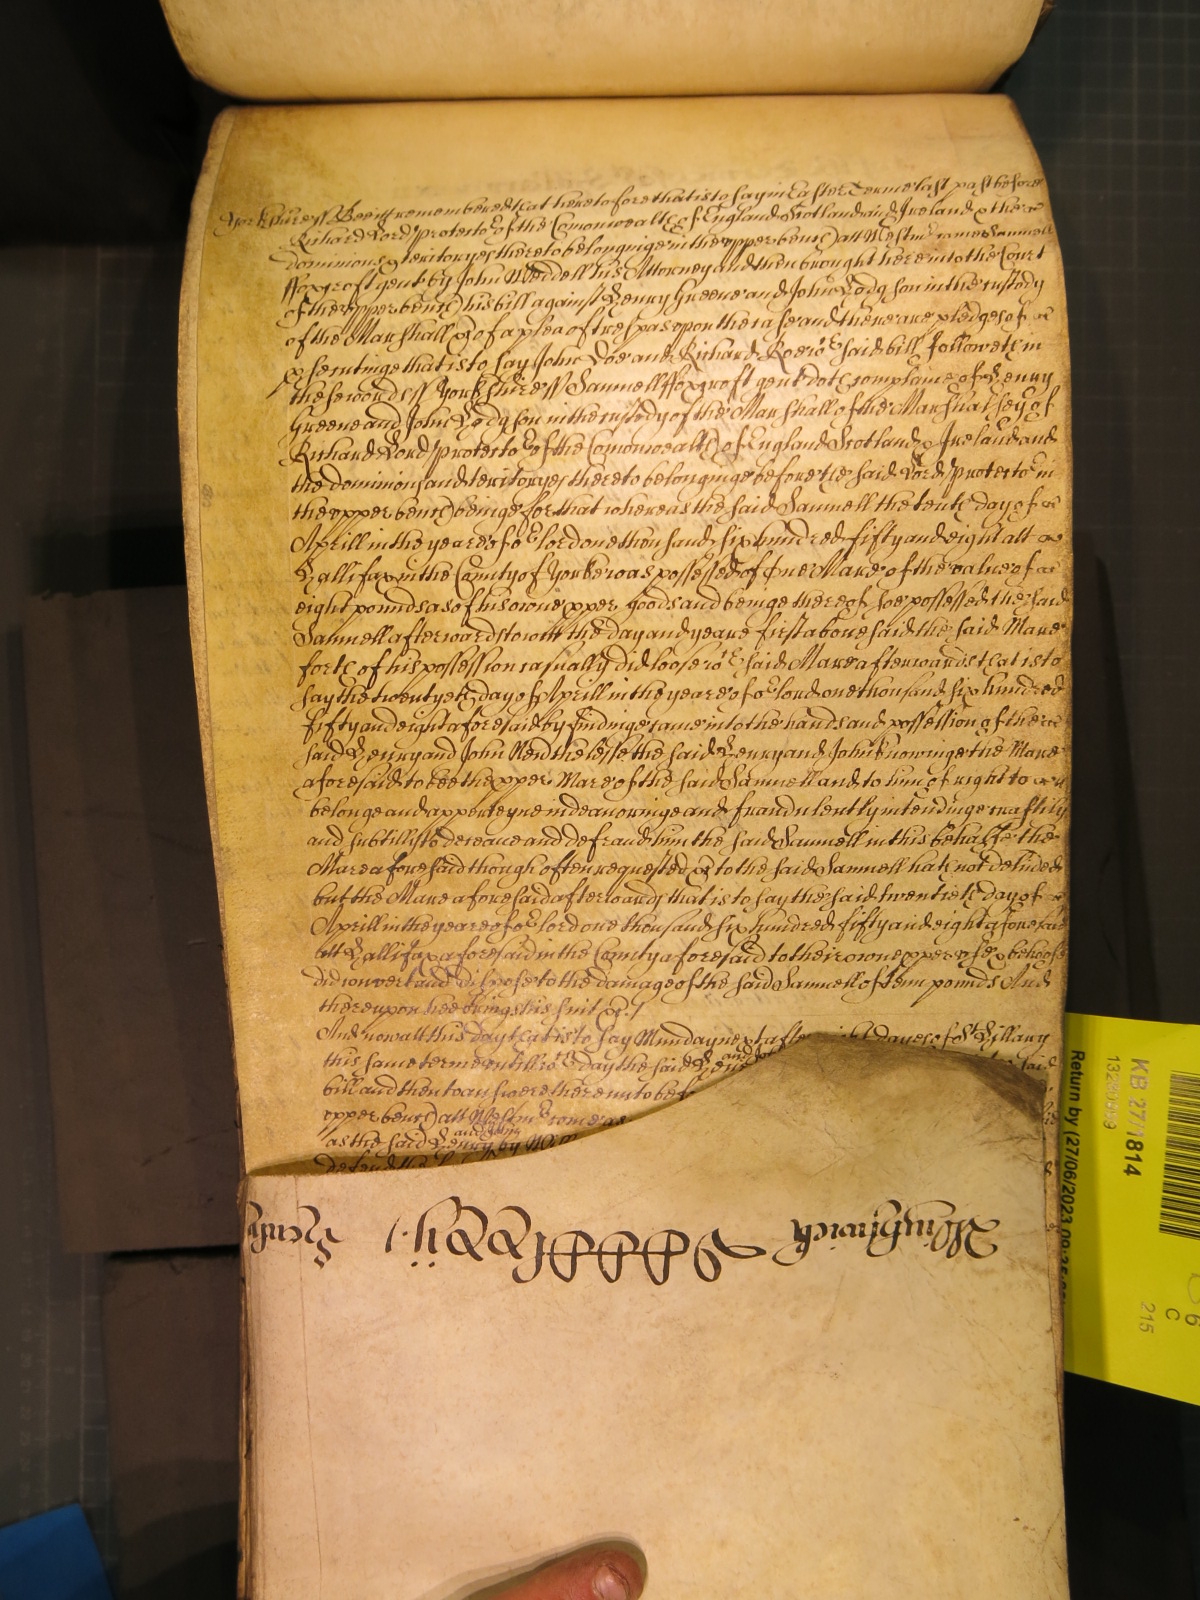 Yorkshire ss Bee it remembered that heretofore that is to say in Easter Terme last past before
Richard Lord Protector of the Comonwealth of England Scotland and Ireland & the
dominions & teritoryes thereto belonginge in the upper bench att Westmr came Samuell
ffoxcroft gent by John Weddell his Attorney and then brought here into the Court
of the upper bench his bill against Henry Greene and John Hodgson in the custody
of the Marshall &c of a plea of trespas upon the case and there are pledges of
p'secutinge that is to say John Doe and Richard Roe wch said bill followeth in
these words ss Yorkshire ss Samuell ffoxcroft gent doth complaine of Henry
Greene and John Hodgson in the custody of the Marshall of the Marshalsey of
Richard Lord Protector of the Comonwealth of England Scotland & Ireland and
the dominions and teritoryes thereto belonginge before the said Lord Protector in
the upper bench beinge for that whereas the said Samuell the tenth day of
Aprill in the yeare of or lord one thousand six hundred fifty and eight att
Hallifax in the County of Yorke was possessed of one Mare of the value of
eight pounds as of his owne p'per goods and beinge thereof soe possessed the said
Samuell afterwards to witt the day and yeare first abovesaid the said Mare
forth of his possession casually did loose wch said Mare afterwards that is to
say the twentyeth day of Aprill in the yeare of or lord one thousand six hundred
fifty and eight aforesaid by findinge came into the hands and possession of the
said Henry and John Neverthelesse the said Henry and John knowinge the Mare
aforesaid to bee the p'per Mare of the said Samuell and to him of right to
belonge and apperteyne indeavoringe and fraudulently intendinge craftily
and subtilly to deceave and defraud him the said Samuell in this behalfe the
Mare aforesaid though often requested &c to the said Samuell hath not delivered
but the Mare aforesaid afterwards that is to say the said twentieth day of
Aprill in the yeare of or lord one thousand six hundred fifty and eight aforesaid
att Hallifax aforesaid in the County aforesaid to their owne p'per use & behoofe
did convert and dispose to the damage of the said Samuell of tenn pounds And
thereupon hee brings his suit &c /
And now att this day that is to say Munday next after dayes of St Hillary
this same terme untill wch day the said Henry and said
bill and then to answere thereunto
upper bench att Westmr came as
as the said Henry and John by
defend the
Winchwich
Henry
KB 27/1814
13280949
Return by (27/06/2023
C
215